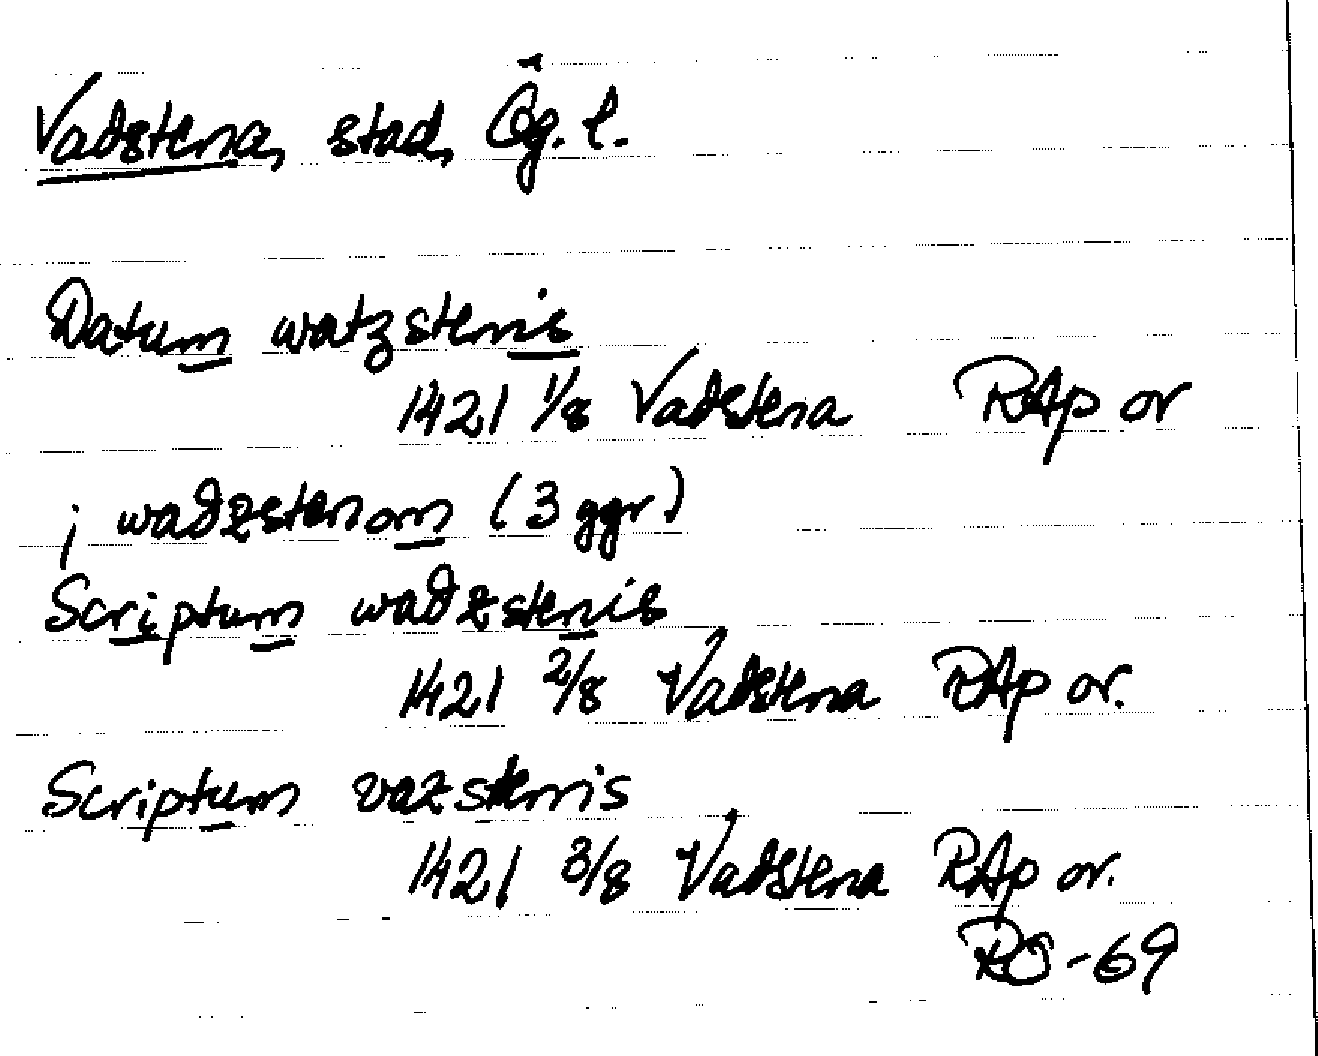 Vadstena, stad, Ög. l.
Datum watzstenis
1421 1/8 Vadstena RAp or
j wadzstenom (3 ggr)
Scriptum wadzstenis
1421 2/8 Vadstena RAp or.
Scriptum vazstenis
1421 3/8 Vadstena RAp or.
RO-69